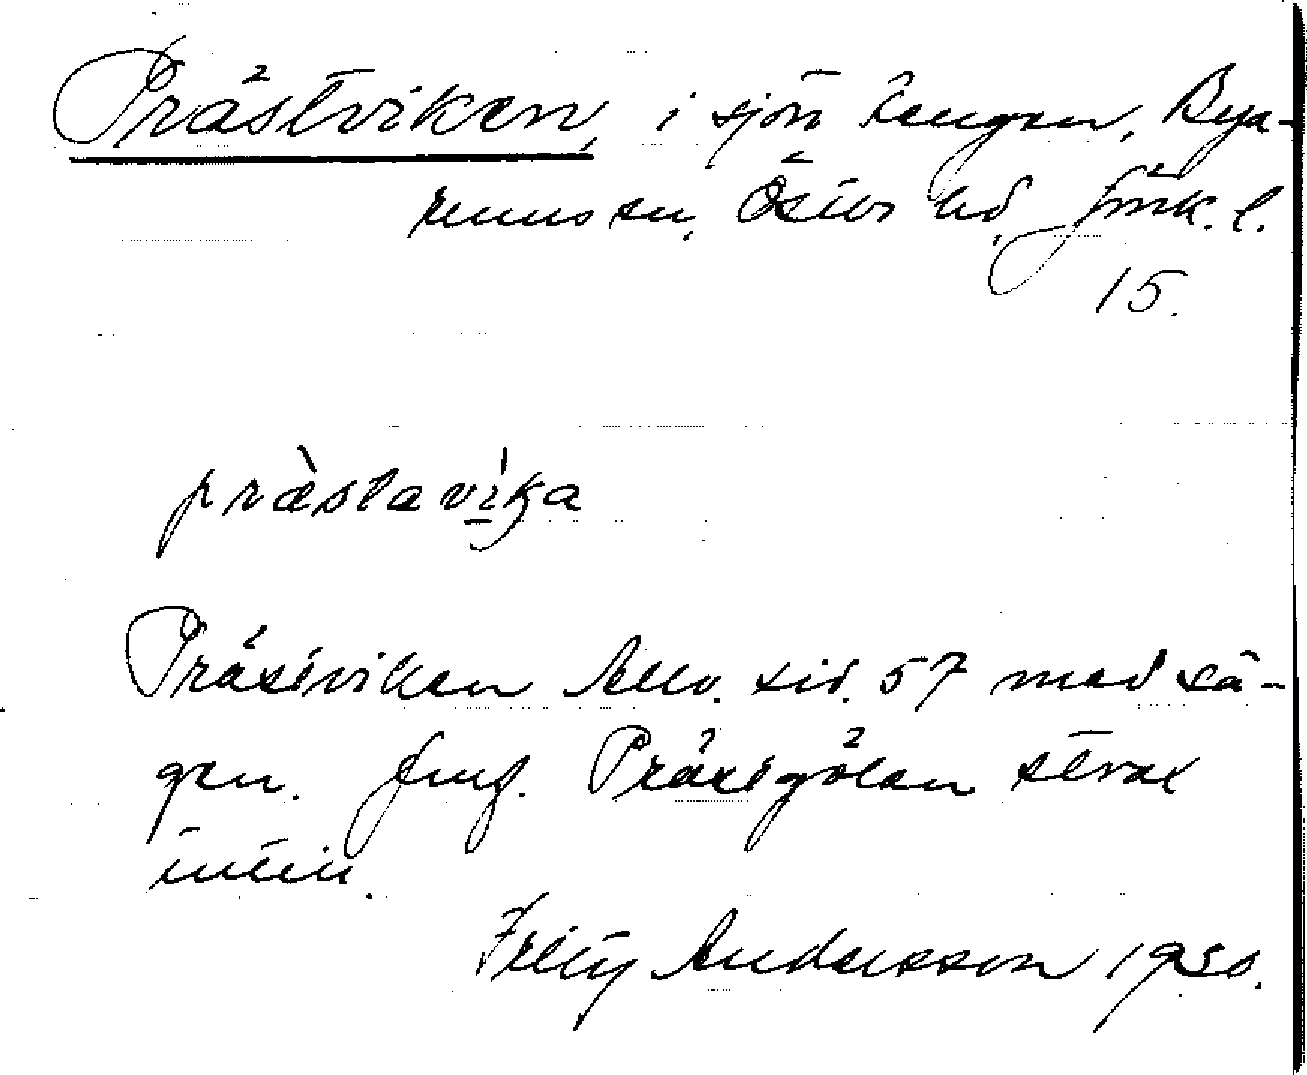 Prästviken, i sjön Rengen, Rya-
rum sn, Östbo hd, Jönk. l.
15.
prästavika
Prästviken Allv. sid. 57 med sä-
gen. Jmf. Prästgölen strax
intill.
Fritz Andersson 1930.